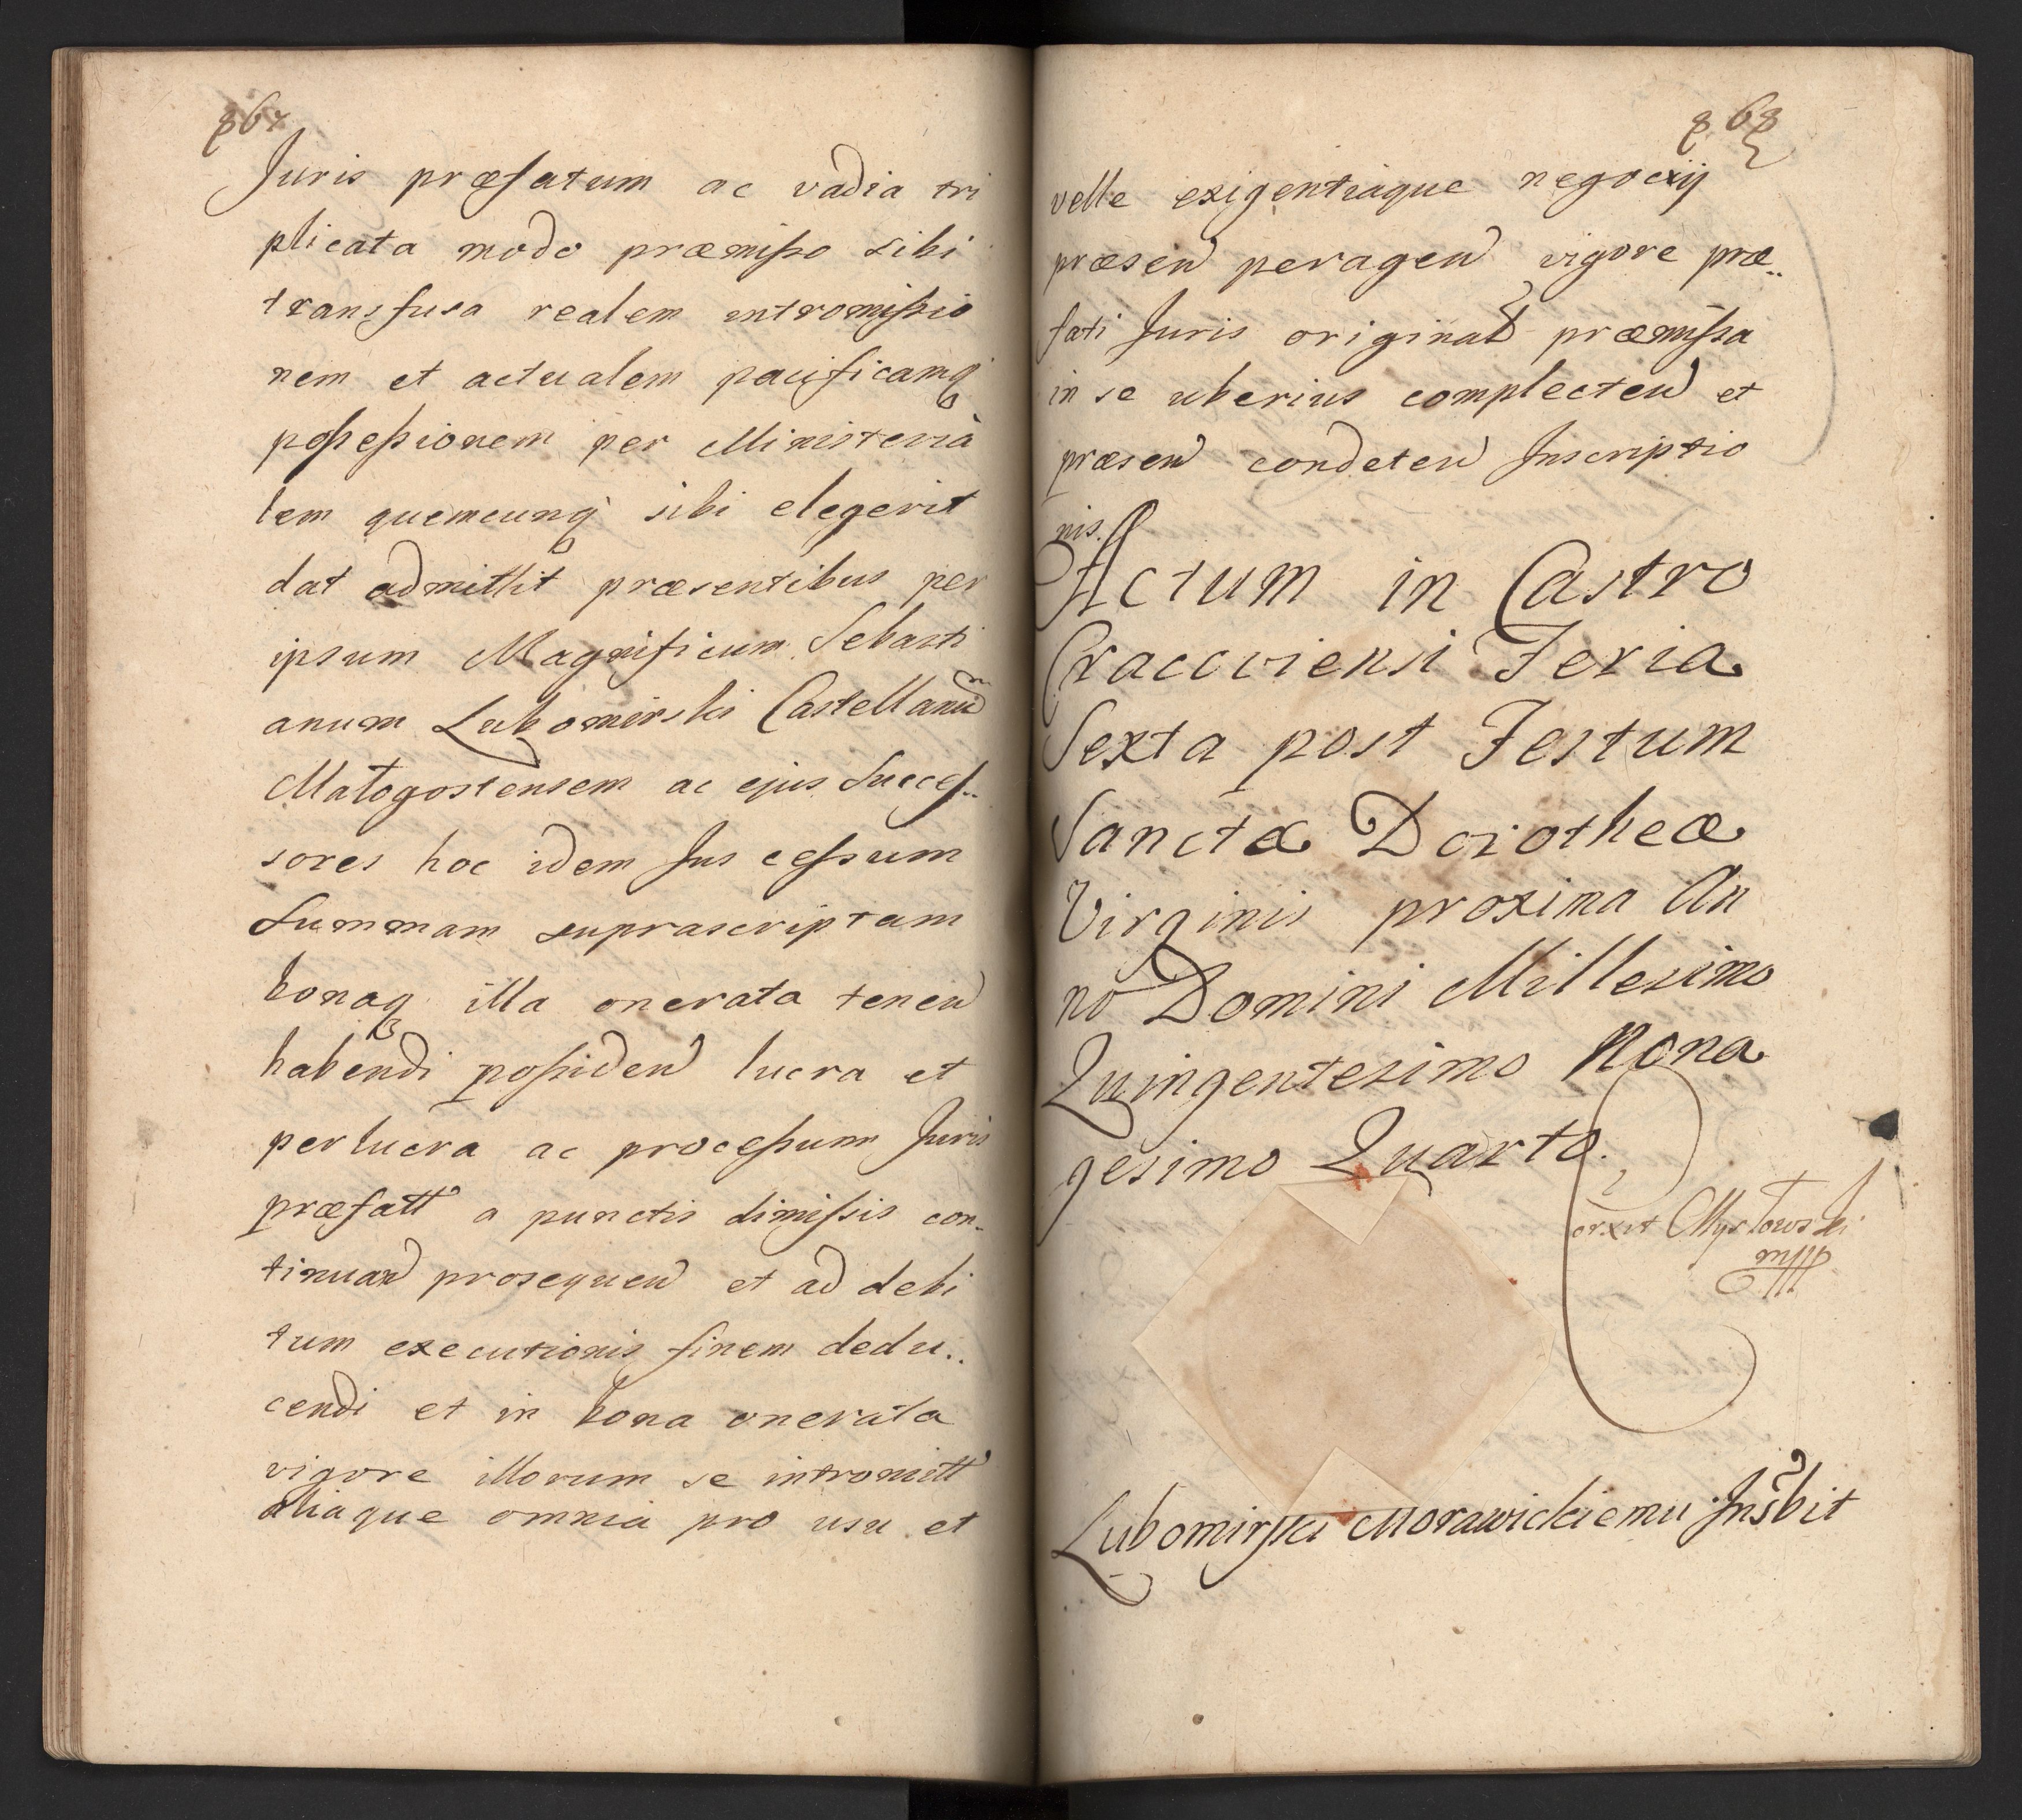 867
Juris præfatum ac vadia tri
plicata modo præmisso sibi
transfusa realem intromissio
nem et actualem pacificamq
possessionem per Ministeria
lem quemcunq sibi elegerit
dat admittit præsentibus per
ipsum Magnificum Sebasti
anum Lubomirski Castellanum
Małogostensem ac ejus Succes..
sores hoc idem Jus cessum
Summam suprascriptam
bonaq illa onerata tenen
habendi possiden lucra et
perlucra ac processum Juris
præfatt a punctis dimissis con-
tinuan prosequen et ad debi
tum executionis finem dedu..
cendi et in bona onerata
vigore illorum se intromitt
aliaque omnia pro usu et
868
velle exigentiaque negocij
præsen peragen vigore præ..
fati Juris original præmissa
in se uberius complecten et
præsen condeten Inscriptio
nis.
Actum in Castro
Cracoviensi Feria
Sexta post Festum
Sanctæ Dorotheæ
Virginis proxima An
no Domini Millesimo
Quingentesimo Nona
gesimo Quarto.
mpp
Lubomirski Morawickiemu Inscbit